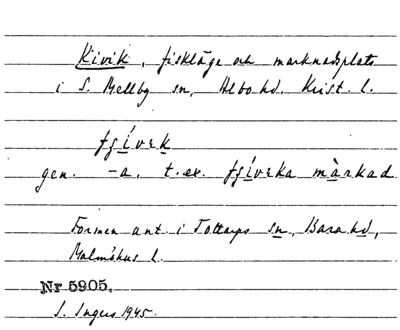 Kivik, fiskläge och marknadsplats
i S. Mellby sn, Albo hd, Krist. l.
fʒívɛk
gen. -a, t.ex. fʒívɛka màrkad
Formen ant. i Tottarps sn, Bara hd,
Malmöhus l.
Nr 5905.
I. Ingers 1945.